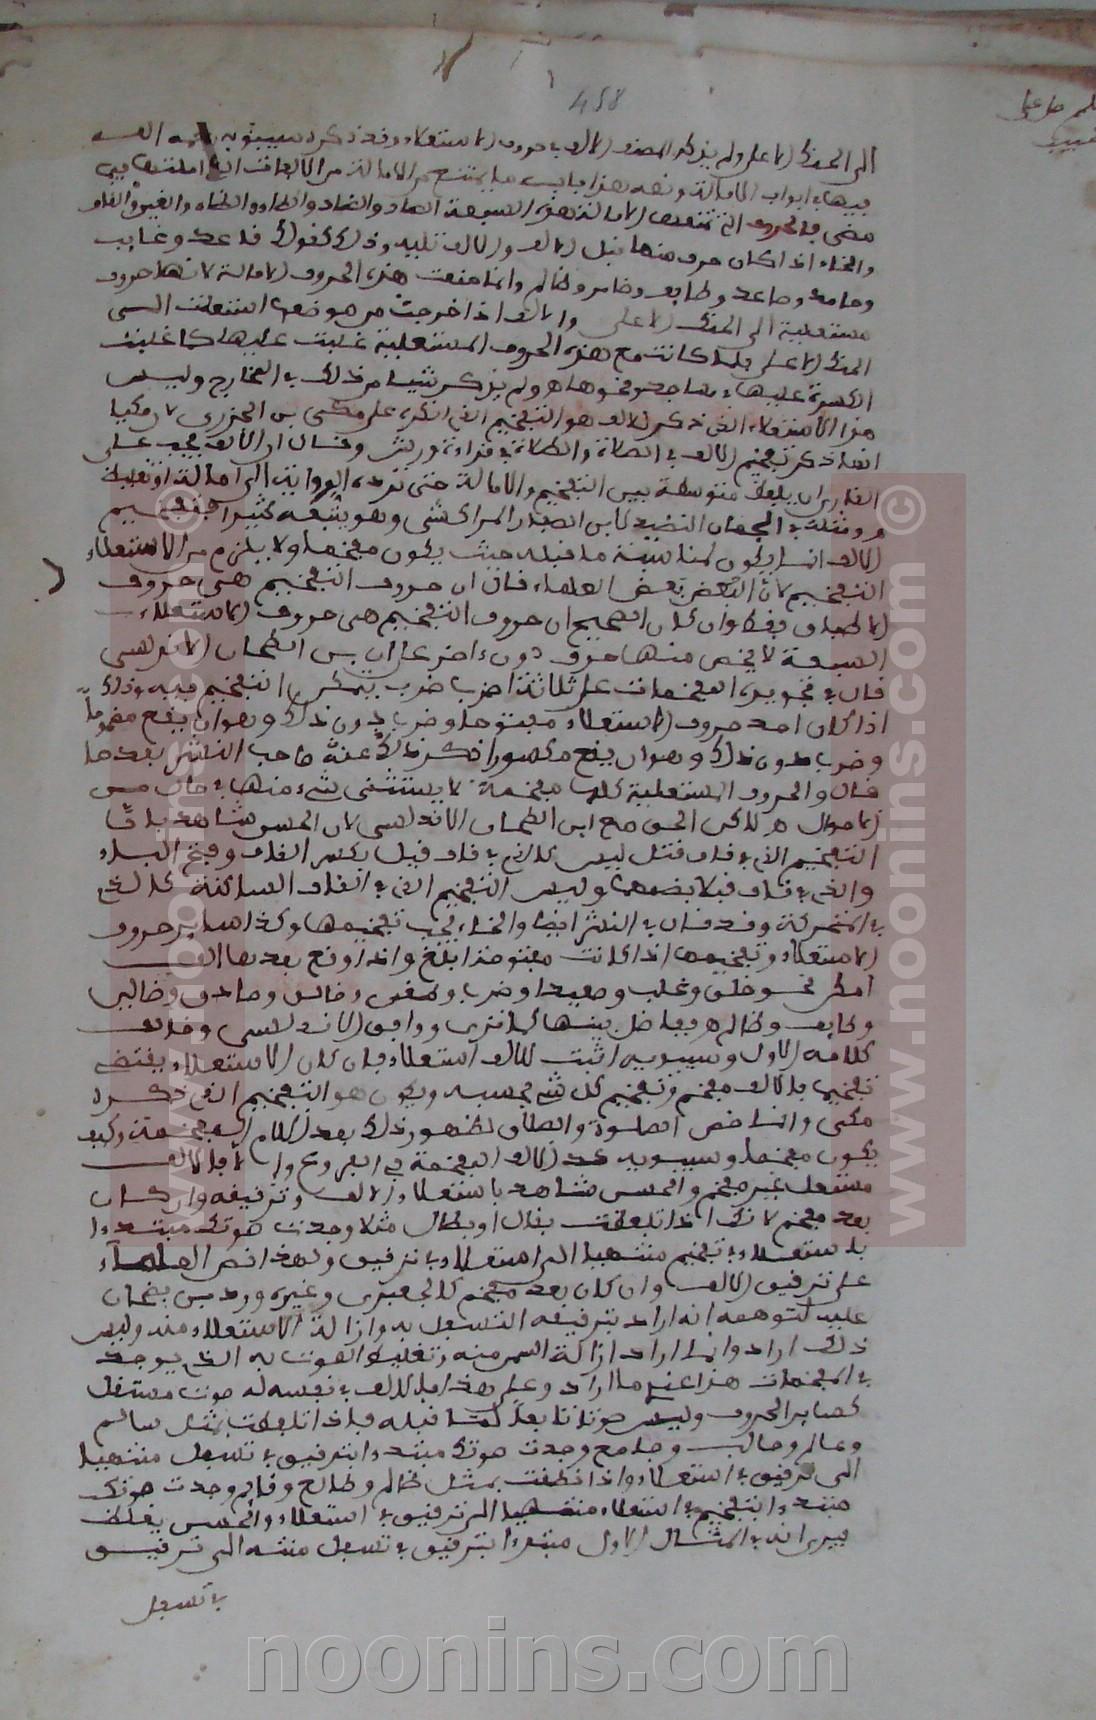 458
الى الحنك الاعلى ولم يذكر المصنف الالف في حروف الاستعلاء وقد ذكره سيبويه
فيها في ابواب الامالة ونصه هذا باب ما يمتنع من الامالة من الالفات التي املتها فيما
مضى فالحروف التي تمنعها الامالة هذه السبعة الصاد والضاد والطاء والظاء والغين والقاف
والخاء اذا كان حرف منها قبل الالف والالف تليه وذلك كقولك قاعد وغايب
وخامد وصاعد وطايف وضامر وظالم وانما منعت هذه الحروف الامالة لانها حروف
مستعلية الى الحنك الاعلى والالف اذا خرجت من موضعها استعلت الى
الحنك الاعلى فلما كانت مع هذه الحروف المستعلية غلبت عليها كما غلبت
الكسرة عليها في مساجد ونحوها ولم يذكر شيئا من ذلك في المخارج وليس
هذا الاستعلاء الذي ذكر للالف هو التفخيم الذي انكره على مكي بن الجزري لان مكيا
انما ذكر تفخيم الالف في الصلاة والطلاق في قراءة ورش وقال ان الالف يجب على
القارئ ان يلفظ متوسطة بين التفخيم والامالة حتى ترده الرواية الى امالة او تغليظ
ومثله في الجمان النضيد لابن الصفار المراكشي وهو يتبعه كثيرا فتفخيم
الالف انما يكون لمناسبة ما قبله حيث يكون مفخما ولا يلزم من الاستعلاء
التفخيم لان البعض بعض العلماء قال ان حروف التفخيم هي حروف
الاطباق فقط وان كان الصحيح ان حروف التفخيم هي حروف الاستعلاء
السبعة لا يخص منها حرف دون اخر على ان ابن الطحان الاندلسي
قال في تجويده المفخمات على ثلاثة اضرب ضرب يتمكن التفخيم فيه وذلك
اذا كان احد حروف الاستعلاء مفتوحا وضرب دون ذلك وهو ان يقع مضموما
وضرب دون ذلك وهو ان يقع مكسورا ذكر ذلك عنه صاحب النشر بعد ما
قال والحروف المستعلية كلها مفخمة لا يستثنى شيء منها في حال من
الاحوال لكن الحق مع ابن الطحان الاندلسي لان الحس شاهد بان
التفخيم الذي في قاف قتل ليس كالذي في قاف قيل بكسر القاف وفتح الياء
والذي في قاف قبلا بضمها وليس التفخيم الذي في القاف الساكنة كالذي
في المتحركة وقد قال في النشر ايضا والخاء يجب تفخيمها وكذا سائر حروف
الاستعلاء وتفخيمها اذا كانت مفتوحة ابلغ واذا وقع بعدها الف
امكن نحو خلق وغلب وصعيدا وضرب وطفق وخالق وصادق وضالين
وطايف وظالم ففاضل بينها كما ترى ووافق الاندلسي وخالف
كلامه الاول وسيبويه اثبت للالف استعلاء فان كان الاستعلاء يقتضي
تفخيما فالالف مفخم وتفخيم كل شيء بحسبه ويكون هو التفخيم الذي ذكره
مكي وانما خص الصلوة والطلاق لظهور ذلك بعد اللام المفخمة وكيف
يكون مفخما وسيبويه عد الالف المفخمة في الفروع والا فالالف
مستعل غير مفخم والحس شاهد باستعلاء الالف وترقيقه وان كان
بعد مفخم لانك اذا تلفظت بقال او بطال مثلا وجدت صوتك مبتدءا
باستعلاء في تفخيم منتهيا الى استعلاء في ترقيق ولهذا نص العلماء
على ترقيق الالف وان كان بعد مفخم كالجعبري وغيره ورد بن بضحان
عليه لتوهمه انه اراد بترقيقه التسفل به وازالة الاستعلاء منه وليس
ذلك اراد وانما اراد ازالة السمن منه وتغليظ الصوت به الذي يوجد
في المفخمات هذا غاية ما اراد وعلى هذا فالالف في نفسه له صوت مستقل
كسائر الحروف وليس صوتا تابعا لما قبله فاذا تلفظت بمثل سالم
وعالم وحالب وجامع وجدت صوتك مبتدءا بترقيق في تسفل منتهيا
الى ترقيق في استعلاء واذا نطقت بمثل ظالم وطالع وقايم وجدت صوتك
مبتدءا بتفخيم في استعلاء منتهيا الى ترقيق في استعلاء والحس يغلط
فيرى انه في المثال الاول مبتدءا بترقيق في تسفل منته الى ترقيق
في تسفل
www.noonins.com ©
noonins.com